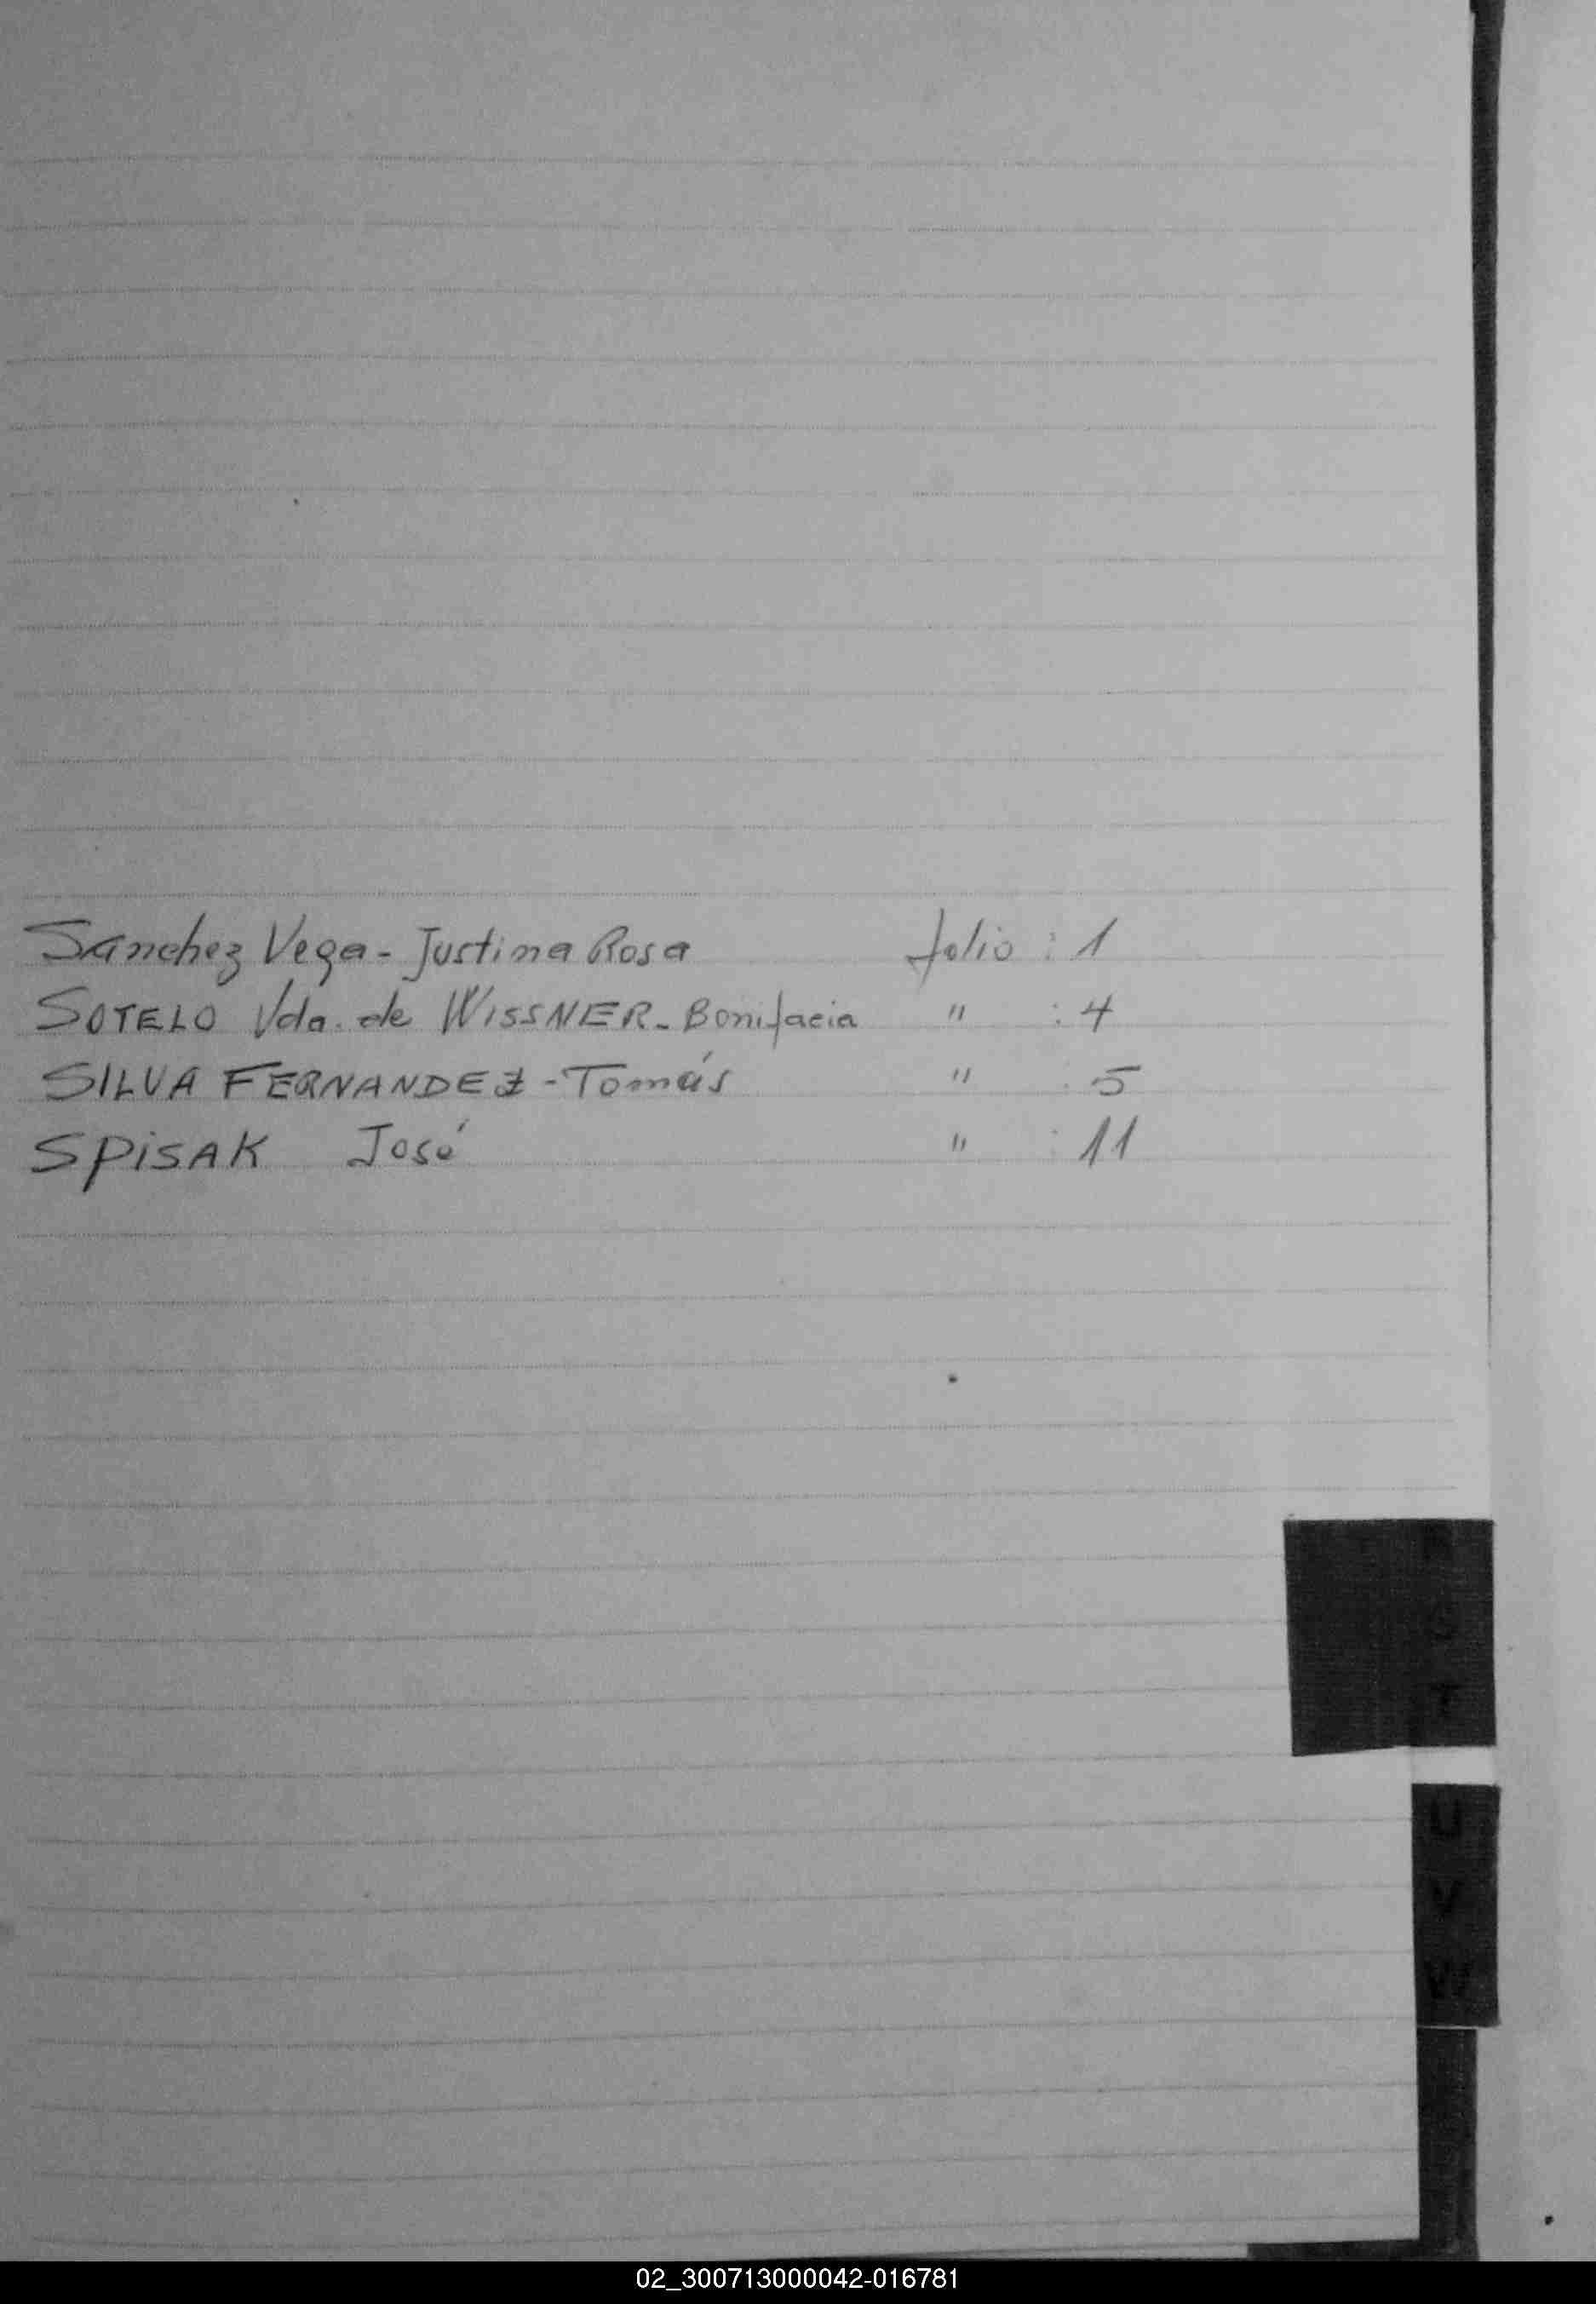 Sánchez Vega - Justina Rosa folio : 1
SOTELO Vda. de WISSNER - Bonifacia " : 4
SILVA FERNANDEZ - Tomás " : 5
SPISAK José " : 11
T
U
V
W
02_300713000042-016781